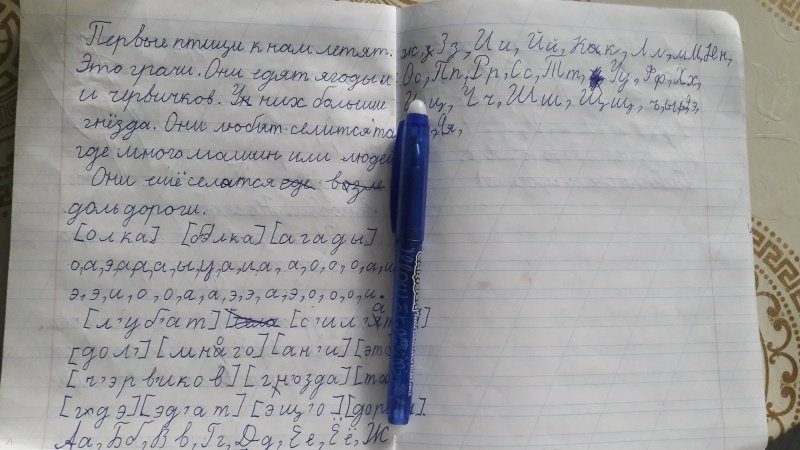 Первые птици к нам летят.
Это грачи. Они едят ягоды и
и червичков. У них большие
гнёзда. Они любят селится та
где много машин или людей
Они ешё селятся где возле
дольдороги.
[олка] [б'элка] [агады]
о, а, э, а, а, а, ы, у, а, и, а, а, о, о, о, а, и
э, э, и, о, о, а, а, э, э, а, э, о, о, о, и.
[л'уб'ат] [с'ил'ат
[дол'] [мнаго] [ан'и] [это
[ч'эрвиков] [гн'озда] [та
[гдэ] [эд'ат] [эщ'о] [дор
Аа, Бб, Вв, Гг, Дд, Ее, Ёё, Ж
ж, Зз, Ии, Йй, Кк, Лл, мМ, Нн,
Оо, Пп, Рр, Сс, Тт, Уу, Фф, Хх,
ц, Чч, Шш, Щщ, ъ, ы, ь, Ээ,
Яя,